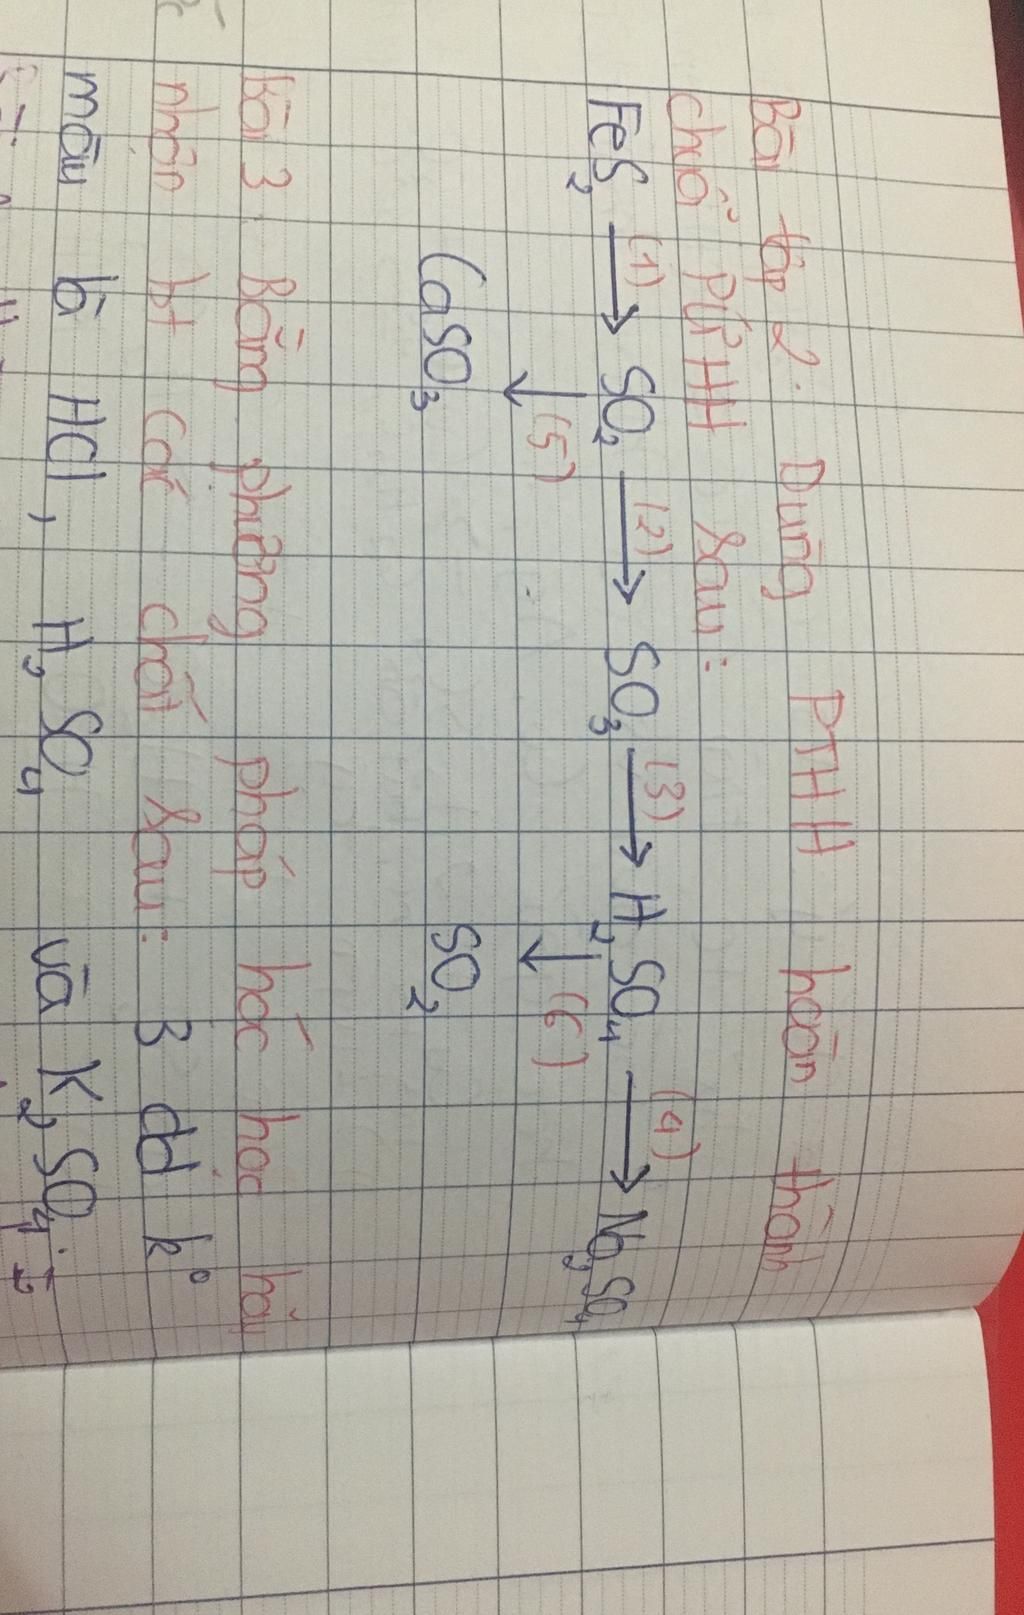 Bài tập 2. Dùng PTHH hoàn thành
chuỗi PƯHH sau:
FeS2 (1)→ SO2 (2)→ SO3 (3)→ H2SO4 (4)→ Na2SO4
↓ (5) ↓ (6)
CaSO3 SO2
Bài 3. Bằng phương pháp hóc học hãy
nhận bt các chất sau: 3 dd k°
màu là HCl, H2SO4 và K2SO4.